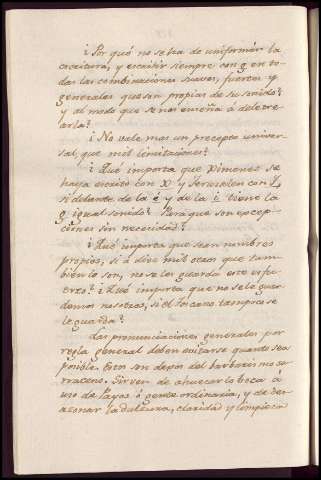 ¿Por qué no se ha de uniformár la
escritura, y escribir siempre con g en to-
das las combinaciones suaves, fuertes y
generales que son propias de su sonido?
y al modo que se nos enseña á deletre-
arla?
¿No vale mas un precepto univer-
sal, que mil limitaciones?
¿Qué importa que Ximenez se
haya escrito con X y Jerusalen con J,
si delante de la e y de la i tiene la
g igual sonido? Para que son excep-
ciones sin necesidad?
¿Qué importa que sean nombres
propios, si á diez mil otros que tam-
bien lo son, no se les guarda este
¿Qué importa que no se le guar-
demos nosotros, si el toscano tampoco se
le guarda?
Las pronunciaciones generales por
regla general deben evitarse quanto sea
posible. Estos son dejos del barbarismo sa-
rraceno. Sirven de ahuecar la boca á
uso de Payos ó gente ordinaria, y de des-
azonar la dulzura, claridad y limpieza